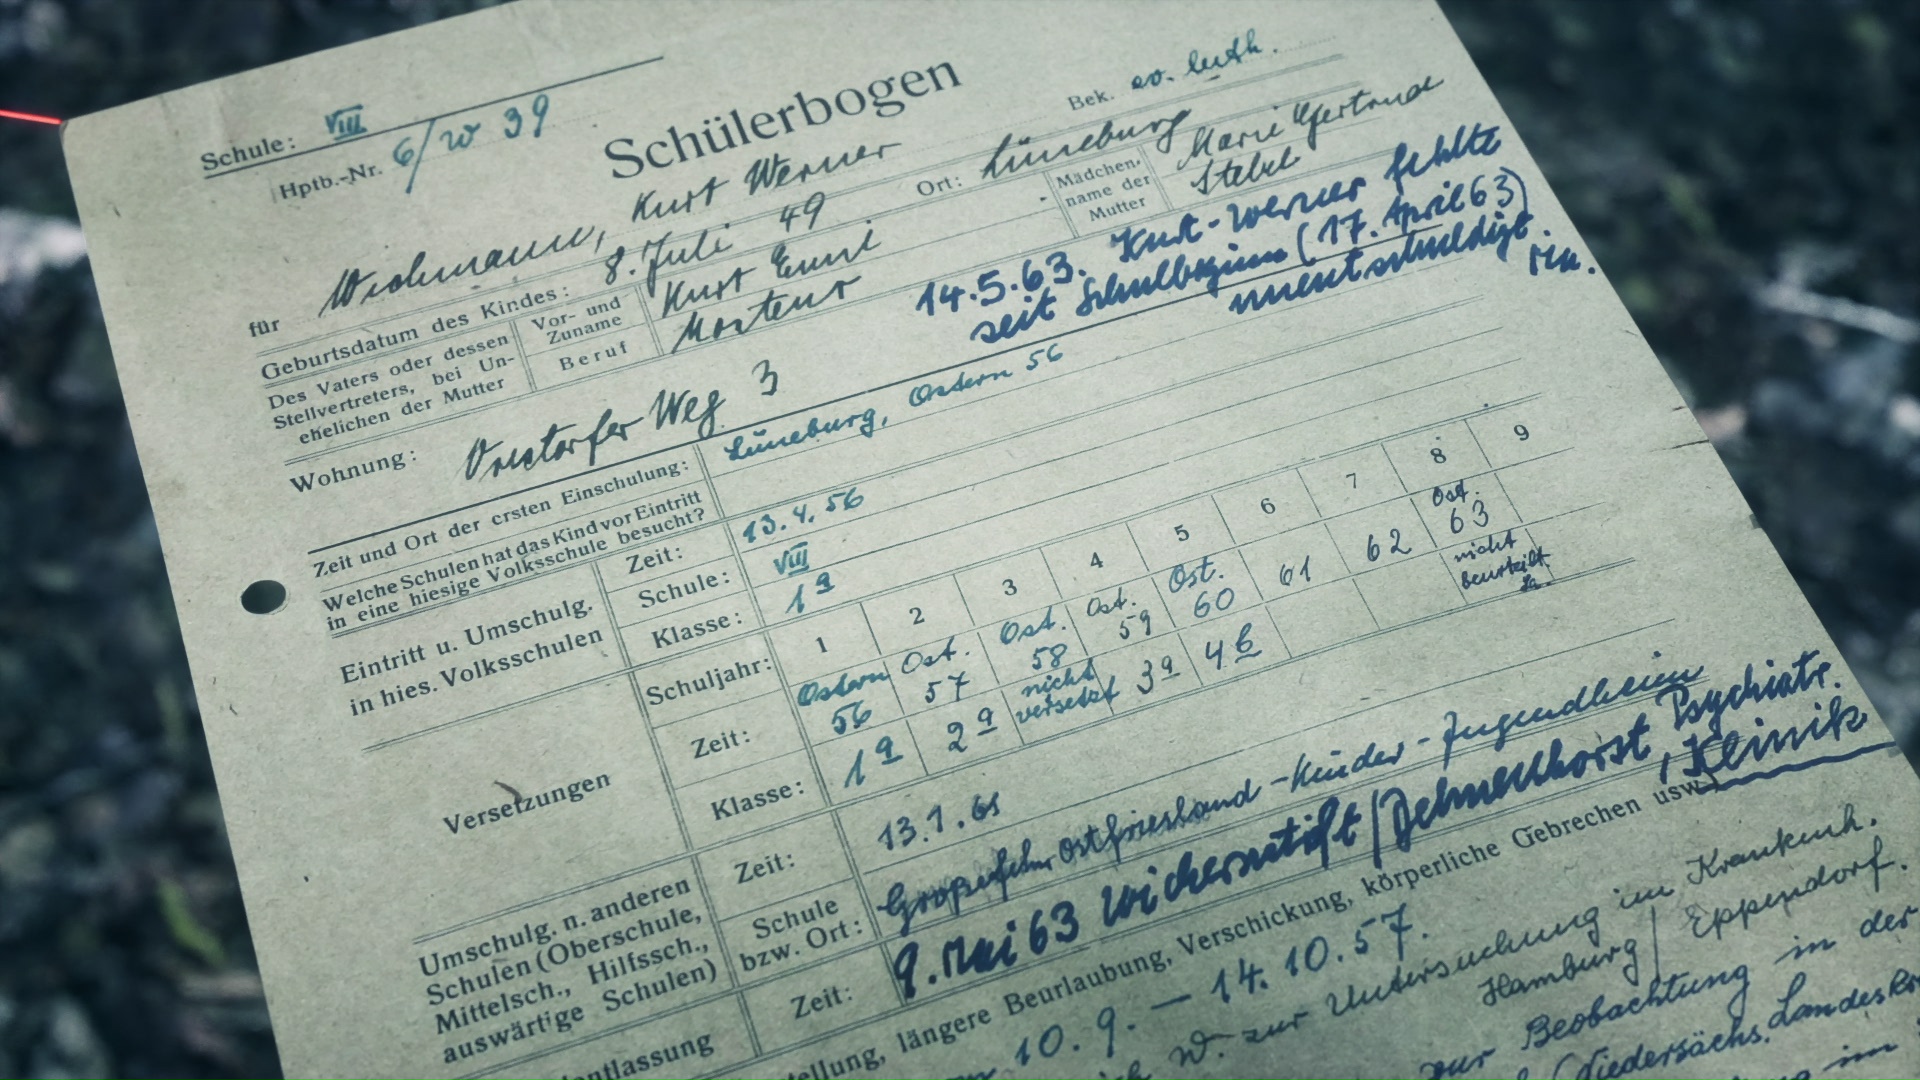 Schule: VIII
Hptb.-Nr. 6/w 39
Schülerbogen
Bek. ev. luth.
für Wichmann, Kurt Werner
Geburtsdatum des Kindes: 8. Juli 49 Ort: Lüneburg
Des Vaters oder dessen Stellvertreters, bei Un-
ehelichen der Mutter
Vor- und Zuname Kurt Emil
Beruf
Mädchen-
name der
Mutter
Marie Gertrude
Stebel
14.5.63. Kurt-Werner fehlte
seit Schulbeginn (17. April 63)
unentschuldigt.
Wohnung: Vrestorfer Weg 3
Zeit und Ort der ersten Einschulung: Lüneburg, Ostern 56
Welche Schulen hat das Kind vor Eintritt
in eine hiesige Volksschule besucht?
Eintritt u. Umschulg.
in hies. Volksschulen
Zeit: 13.4.56
Schule: VIII
Klasse: 1a
Versetzungen
Schuljahr: 1 2 3 4 5 6 7 8 9
Zeit: Ostern 56 Ost. 57 Ost. 58 Ost. 59 Ost. 60 61 62 Ost. 63
Klasse: 1a 2a nicht versetzt 3a 4b nicht beurteilt
Umschulg. n. anderen
Schulen (Oberschule,
Mittelsch., Hilfssch.,
auswärtige Schulen)
Zeit: 13.1.61
Schule
bzw. Ort: Großefehn Ostfriesland - Kinder-Jugendheim
Zeit: 9. Mai 63 Wichernstift/Delmenhorst, Psychiatr. Klinik
entlassung
stellung, längere Beurlaubung, Verschickung, körperliche Gebrechen usw.
10.9. — 14.10.57.
W. zur Untersuchung im Krankenh.
Hamburg/Eppendorf.
zur Beobachtung in der
Niedersächs.
im